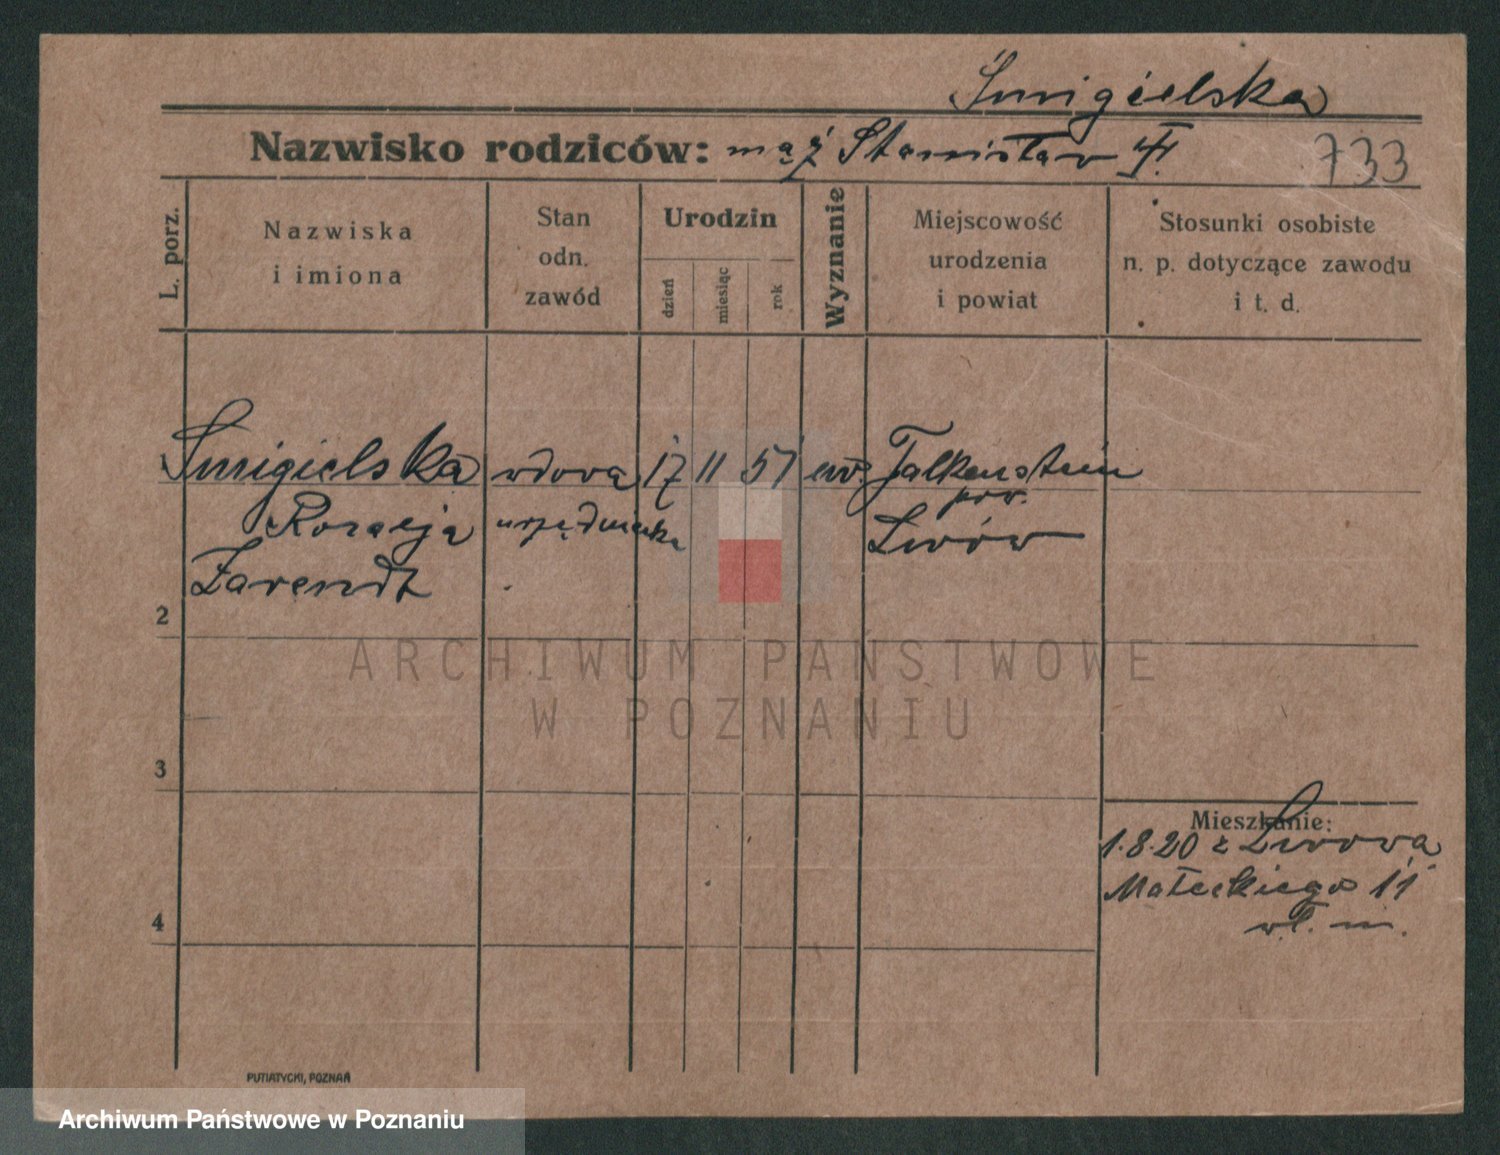 Śmigielska
Nazwisko rodziców: mąż Stanisław
733
L. porz.
Nazwiska
i imiona
Stan
odn.
zawód
Urodzin
dzień
miesiąc
rok
Wyznanie
Miejscowość
urodzenia
i powiat
Stosunki osobiste
n. p. dotyczące zawodu
i t. d.
Śmigielska wdowa 17 11 51 ew. Falkenstein
pow.
Rozalja urzędnicka Lwów
Zarendt
2
ARCHIWUM PAŃSTWOWE
W POZNANIU
3
Mieszkanie:
1.8.20 z Lwowa
Małeckiego 11
4
wł. m.
PUTIATYCKI, POZNAŃ
Archiwum Państwowe w Poznaniu